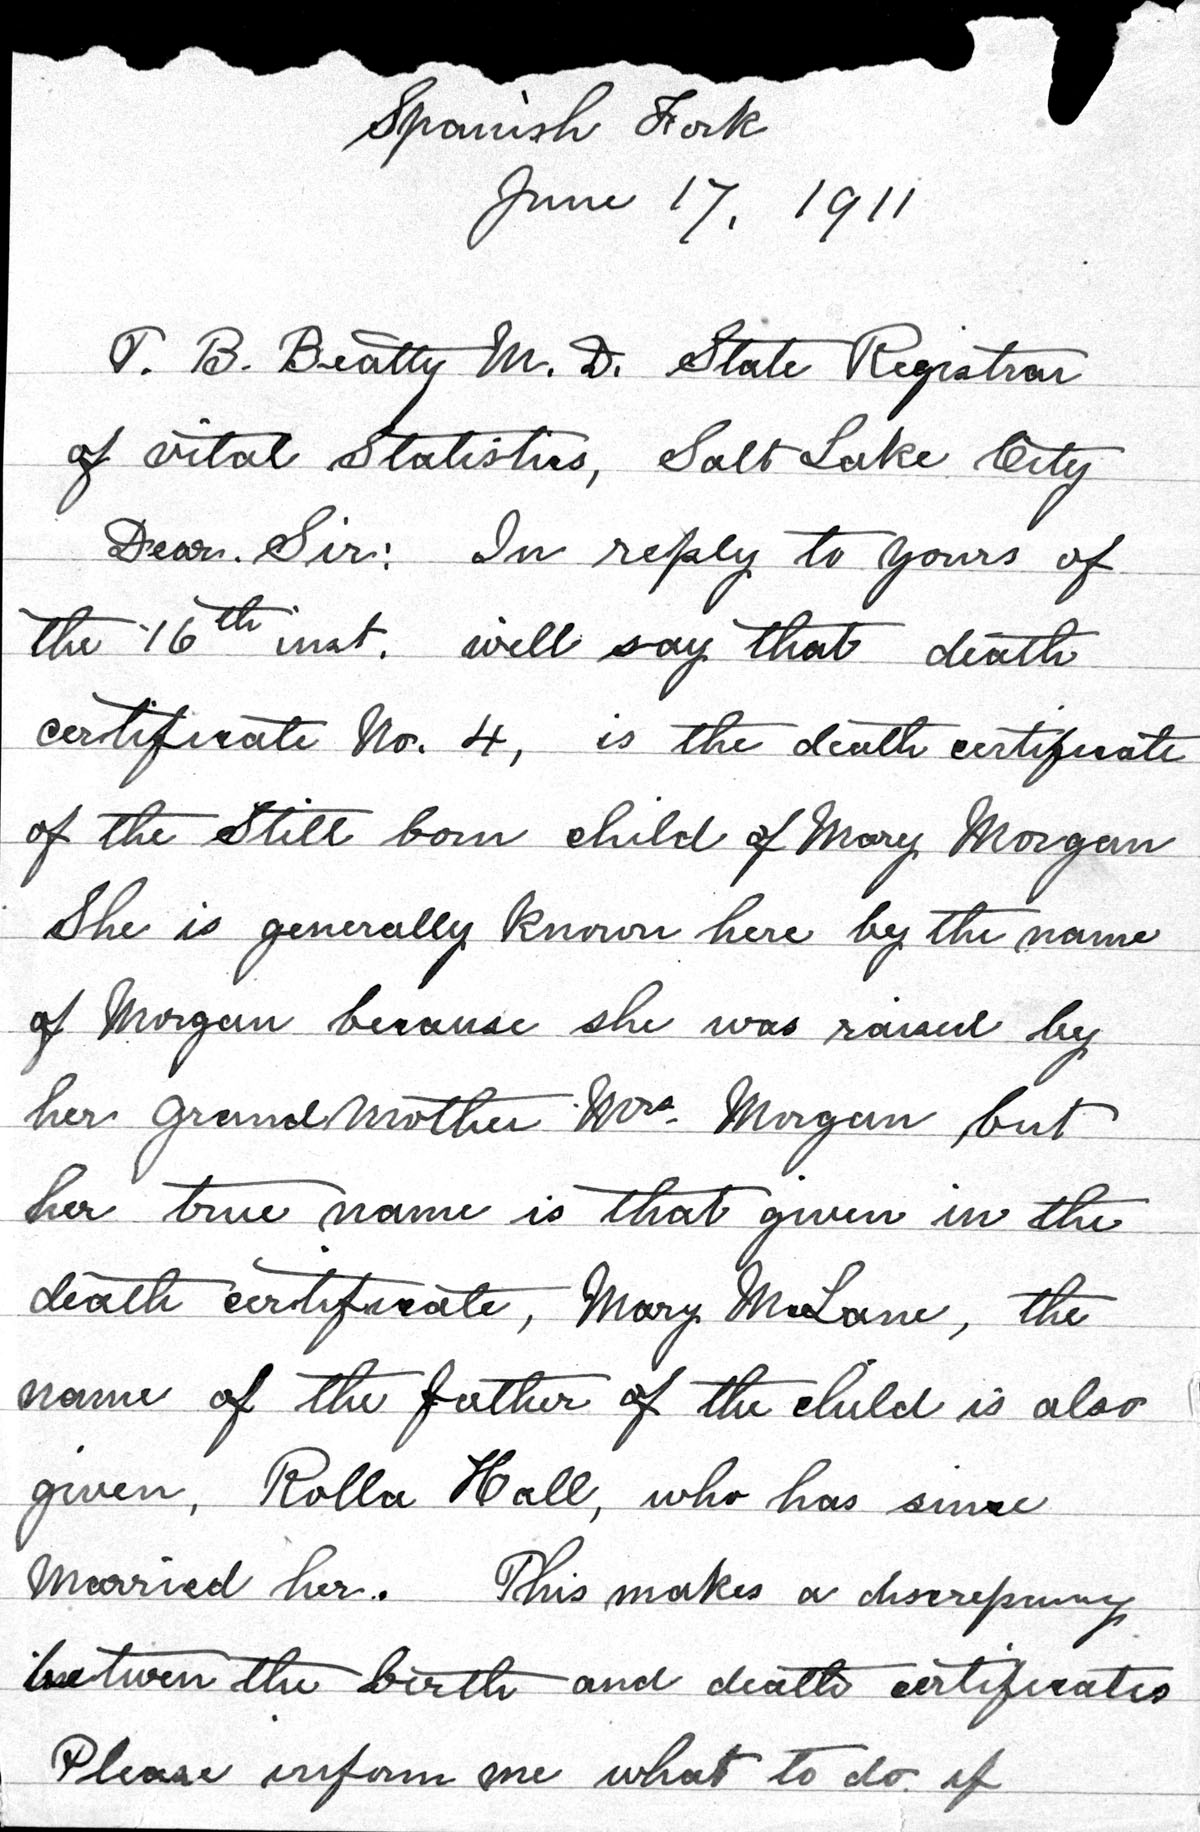 Spanish Fork
June 17, 1911
T. B. Beatty M. D. State Registrar
of vital Statistics, Salt Lake City
Dear Sir: In reply to yours of
the 16th inst. will say that death
certificate No. 4, is the death certificate
of the Still born child of Mary Morgan
She is generally known here by the name
of Morgan because she was raised by
her grandmother Mrs. Morgan but
her true name is that given in the
death certificate, Mary McLane, the
name of the father of the child is also
given, Rolla Hall, who has since
Married her. This makes a discrepancy
between the birth and death certificates
Please inform me what to do if